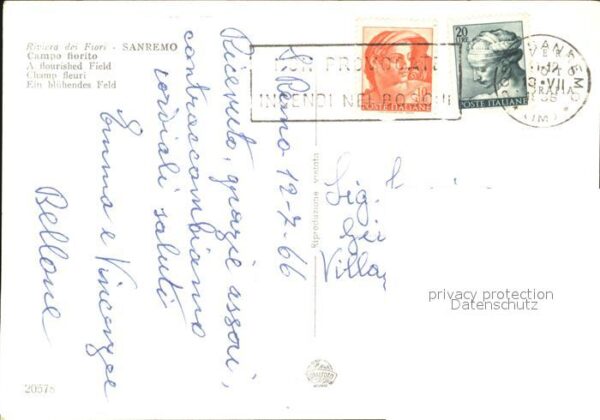 Riviera dei Fiori - SANREMO
Campo fiorito
A flourished Field
Champ fleuri
Ein blühendes Feld
NON PROVOCATE
INCENDI NEI BOSCHI
POSTE ITALIANE
20 LIRE
POSTE ITALIANE
SANREMO
(IM)
S. Remo 12-7-66
Ricevuto, grazie assai,
contraccambiamo
cordiali saluti
Emma e Vincenzo
Bellone
Riproduzione vietata
Sig.
Villa
privacy protection
Datenschutz
20578